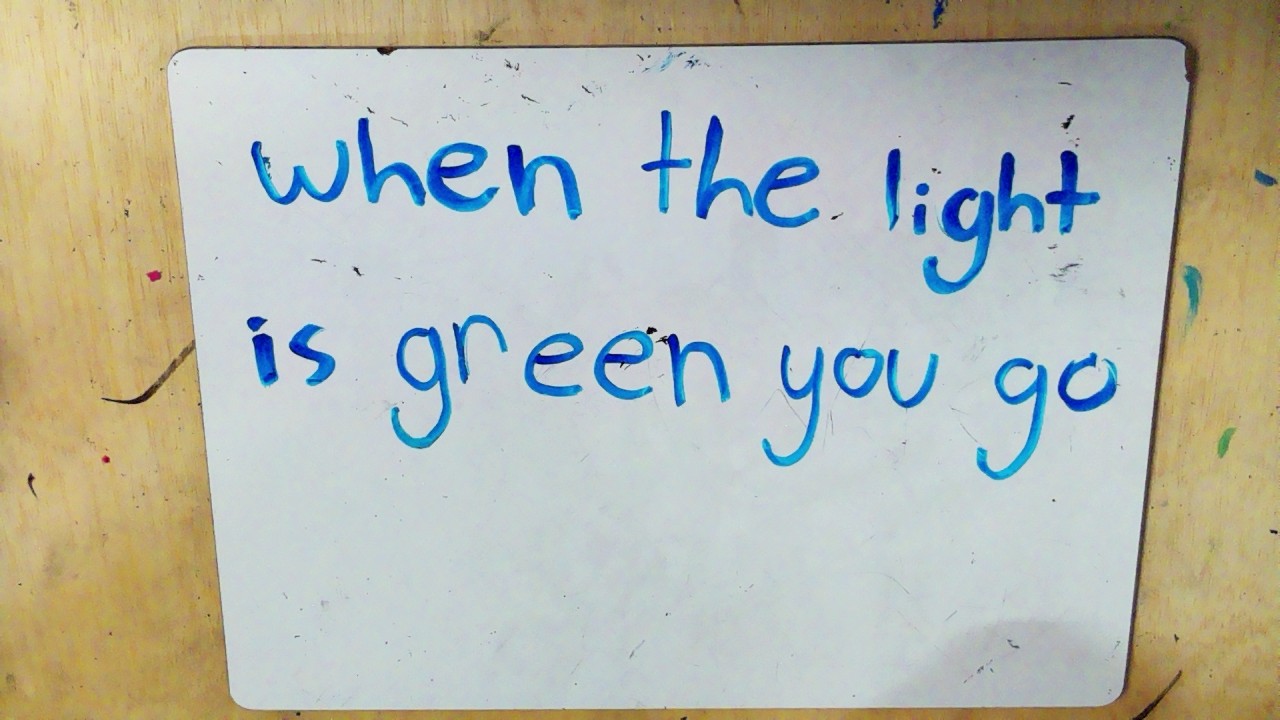 when the light
is green you go